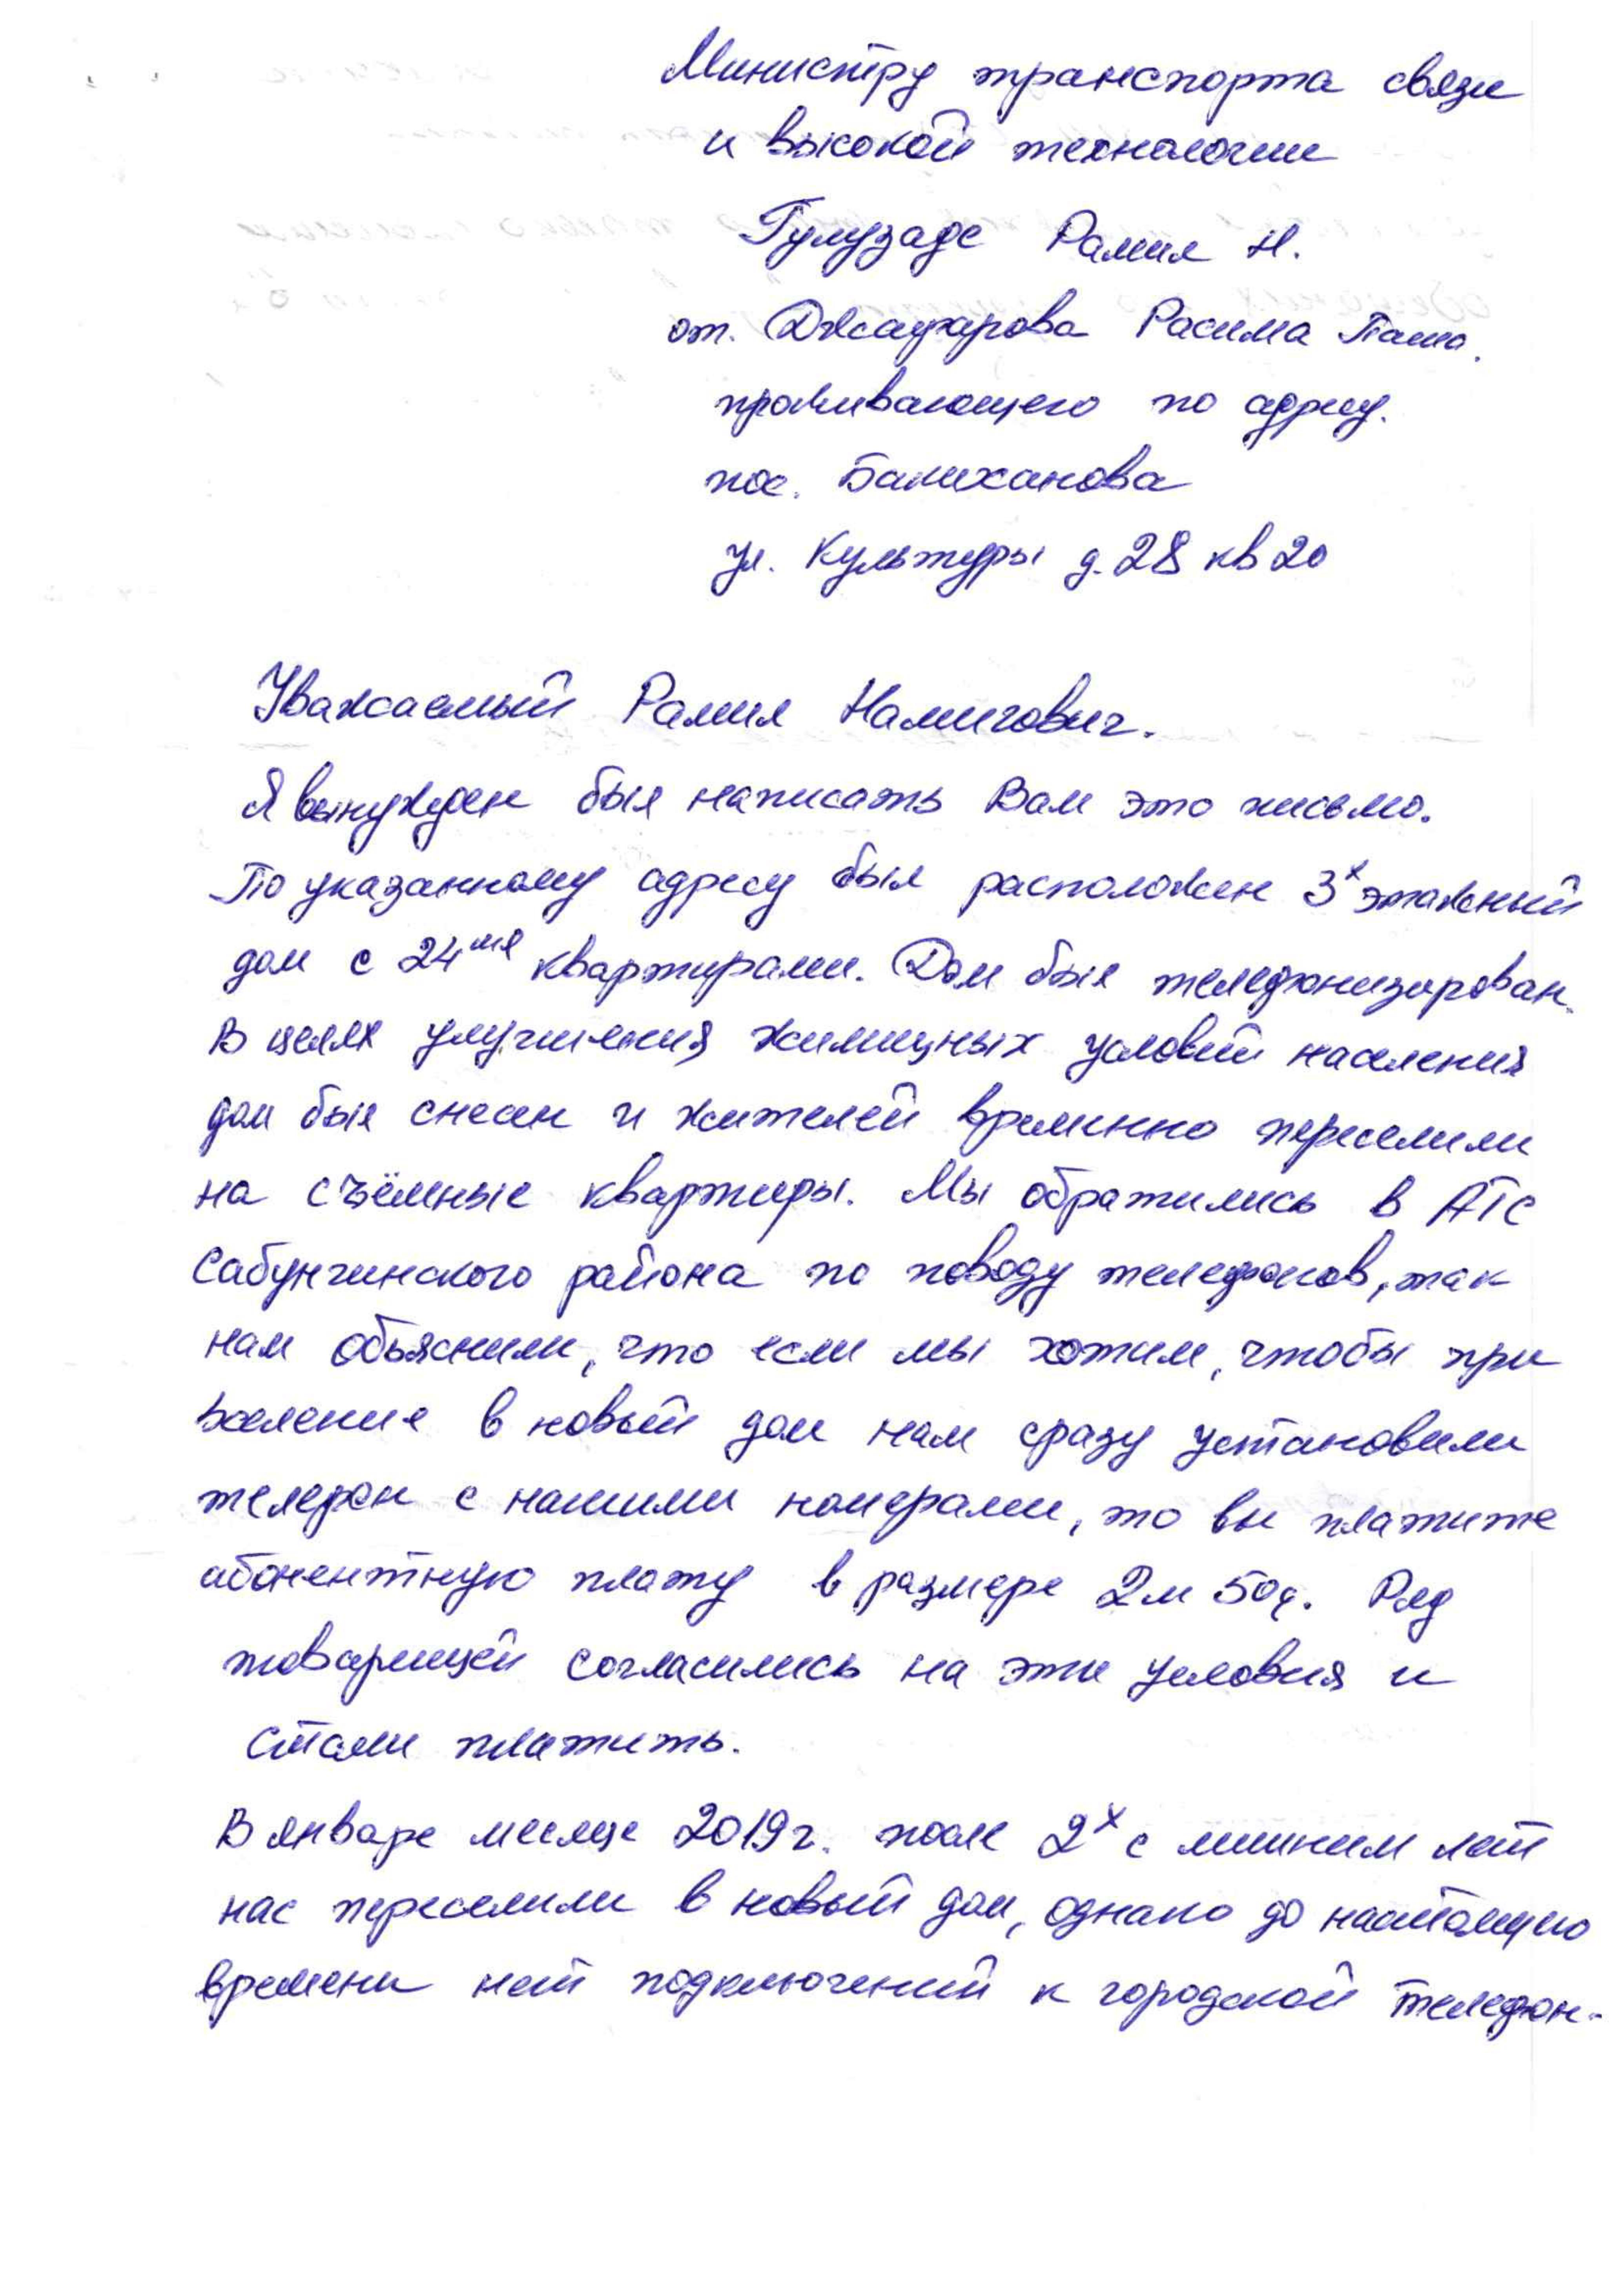 Министру транспорта связи
и высокой технологии
Гулузаде Рамил Н.
от. Джафарова Расима Паша.
проживающего по адресу.
пос. Балиханова
ул. Культуры д. 28 кв 20
Уважаемый Рамил Намигович.
Я вынужден был написать Вам это письмо.
По указанному адресу был расположен 3х этажный
дом с 24мя квартирами. Дом был телефонизирован.
В целях улучшения жилищных условий населения
дом был снесен и жителей временно переселили
на съёмные квартиры. Мы обратились в АТС
Сабунчинского района по поводу телефонов, так
нам объяснили, что если мы хотим, чтобы при
вселение в новый дом нам сразу установили
телефон с нашими номерами, то вы платите
абонентную плату в размере 2м 50q. Ряд
товарищей согласились на эти условия и
стали платить.
В январе месяце 2019г. после 2х с лишним лет
нас переселили в новый дом, однако до настоящего
времени нет подключений к городской телефон-